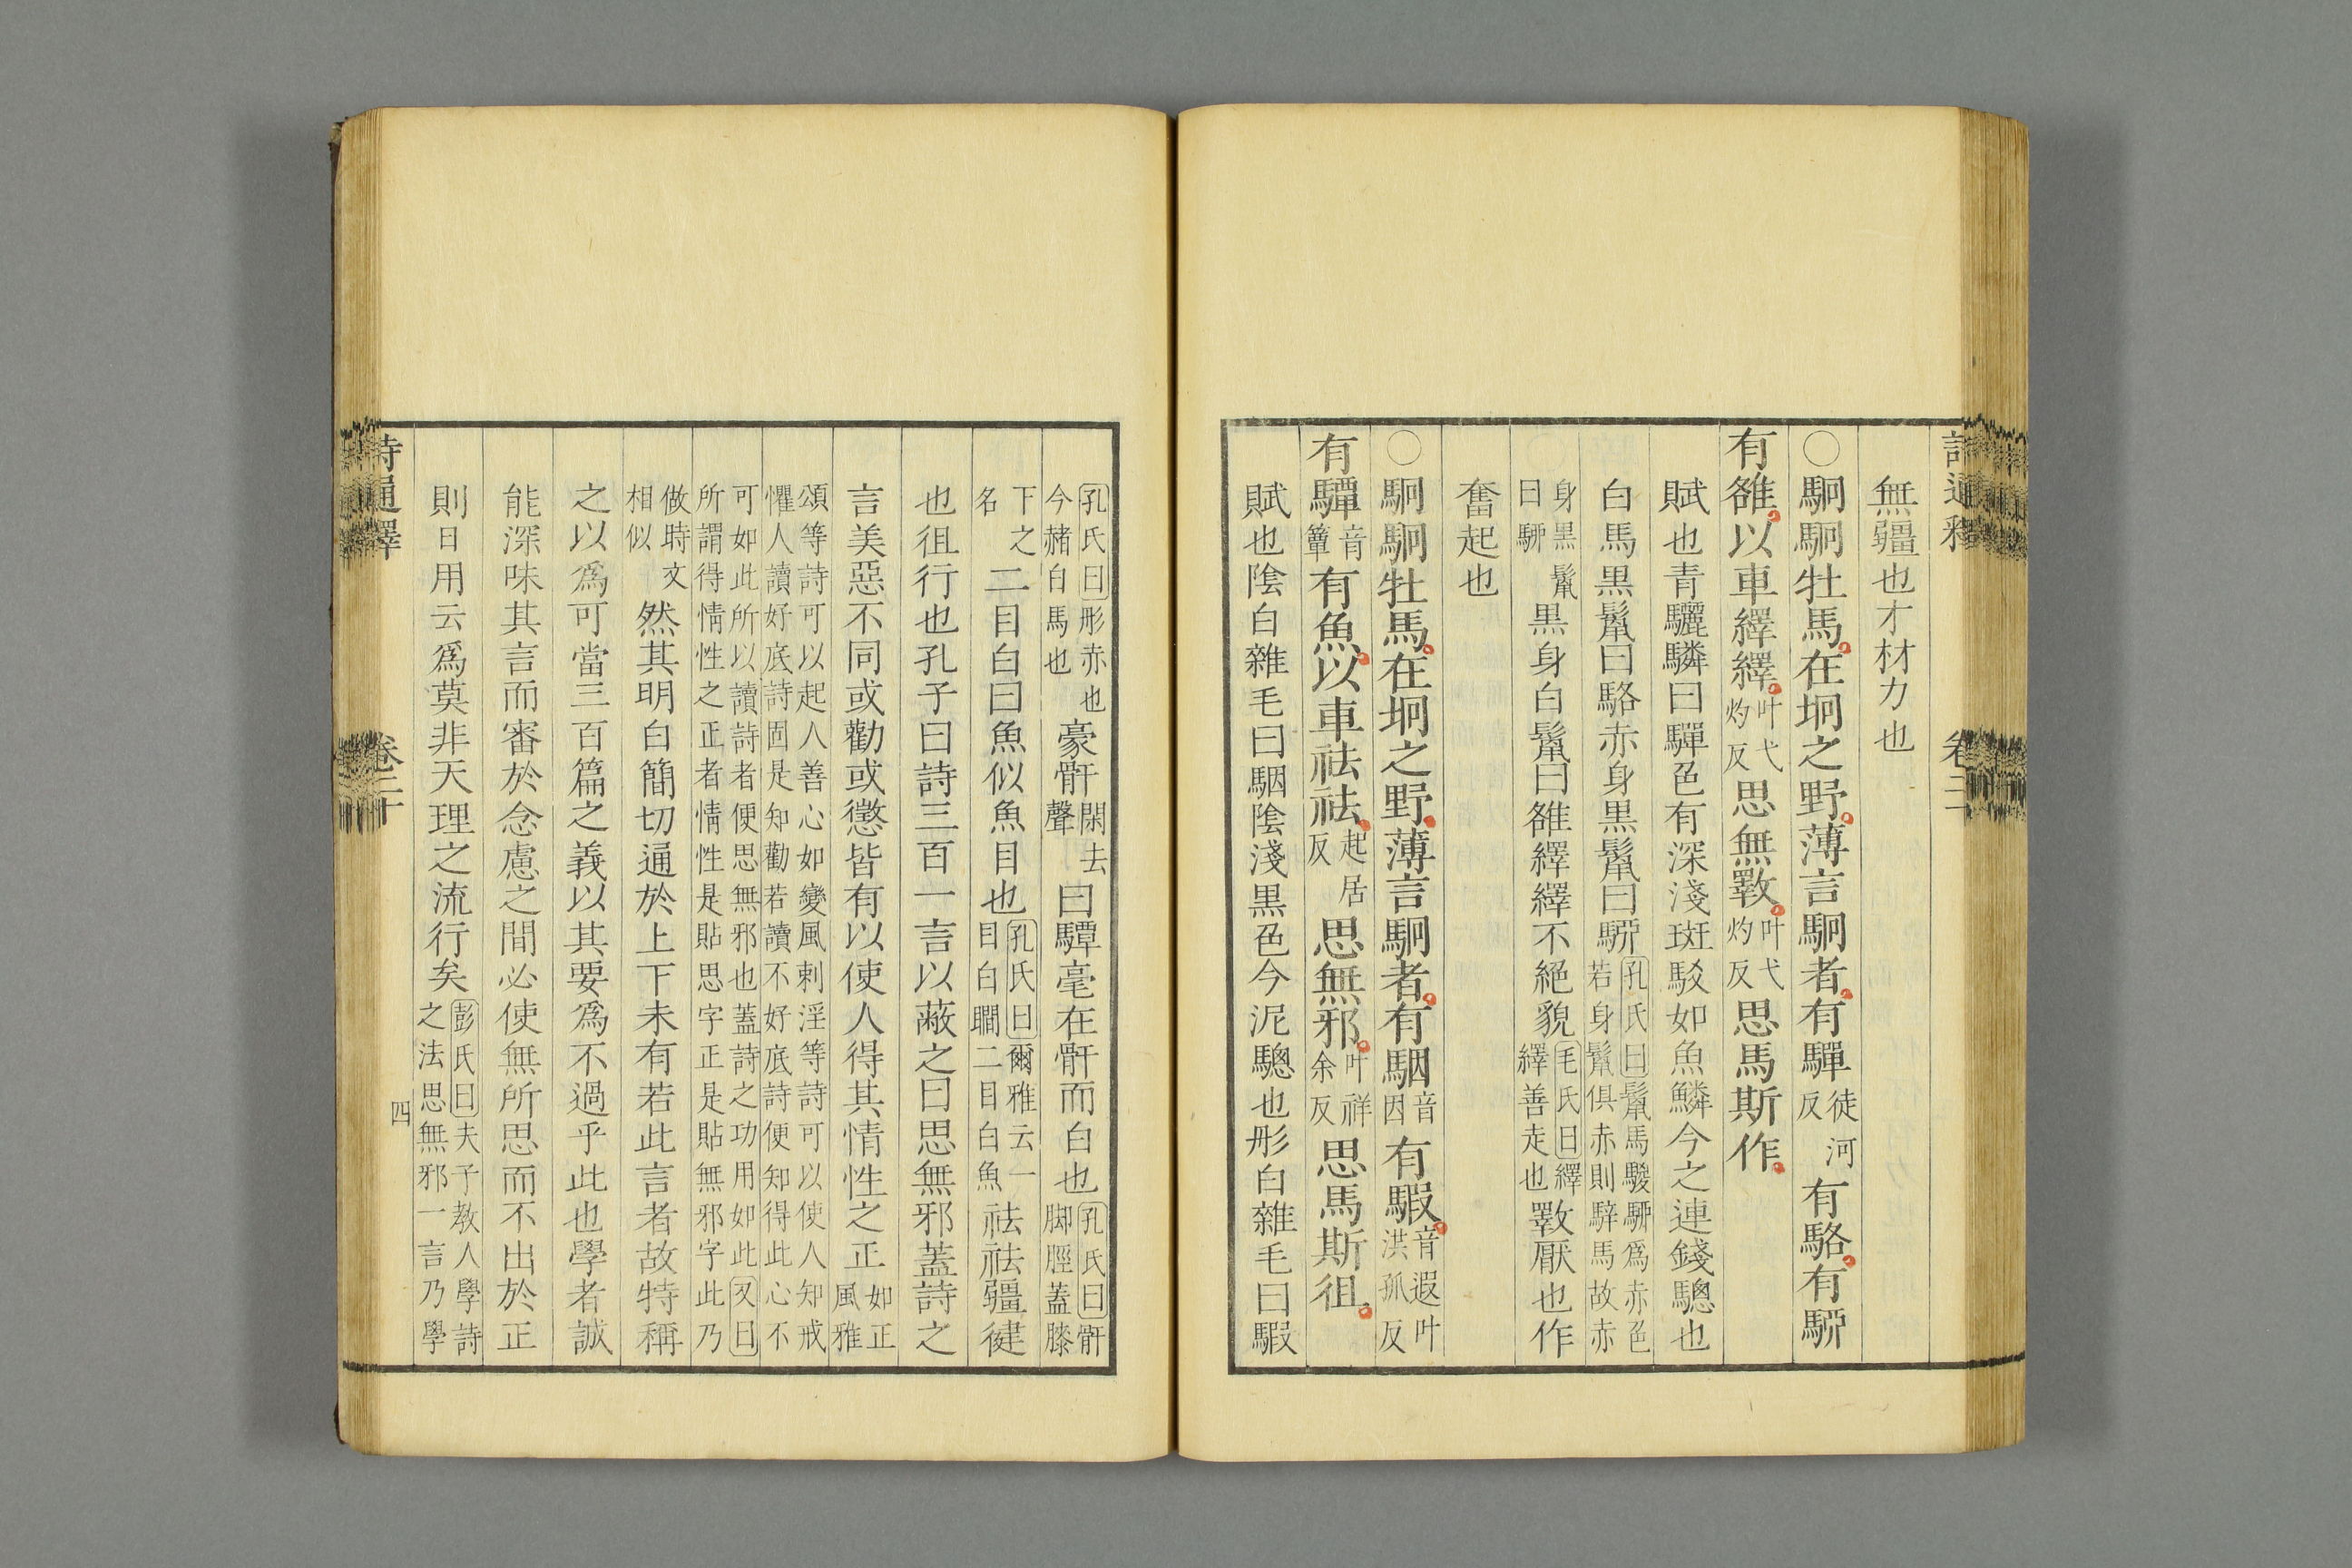 詩通釋 卷二十
無疆也才材力也
○駉駉牡馬在坰之野薄言駉者有驒徒河反有駱有騮
有雒以車繹繹叶弋灼反思無斁叶弋灼反思馬斯作
賦也青驪驎曰驒色有深淺斑駁如魚鱗今之連錢驄也
白馬黒鬛曰駱赤身黒鬛曰騮孔氏曰鬛馬駿騮爲赤色若身鬛俱赤則騂馬故赤
身黒鬛曰騮黒身白鬛曰雒繹繹不絕貌毛氏曰繹繹善走也斁厭也作
奮起也
○駉駉牡馬在坰之野薄言駉者有駰音因有騢音遐叶洪孤反
有驔音簟有魚以車祛祛起居反思無邪叶祥余反思馬斯徂
賦也陰白雜毛曰駰陰淺黒色今泥驄也彤白雜毛曰騢
孔氏曰彤赤也今赭白馬也豪骭閑去聲曰驔毫在骭而白也孔氏曰骭脚脛蓋膝
下之名二目白曰魚似魚目也孔氏曰爾雅云一目白瞯二目白魚祛祛疆健
也徂行也孔子曰詩三百一言以蔽之曰思無邪蓋詩之
言美惡不同或勸或懲皆有以使人得其情性之正如正風雅
頌等詩可以起人善心如變風刺淫等詩可以使人知戒懼人讀好底詩固是知勸若讀不好底詩便知得此心不
可如此所以讀詩者便思無邪也蓋詩之功用如此又曰所謂得情性之正者情性是貼思字正是貼無邪字此乃
做時文相似然其明白簡切通於上下未有若此言者故特稱
之以爲可當三百篇之義以其要爲不過乎此也學者誠
能深味其言而審於念慮之間必使無所思而不出於正
則日用云爲莫非天理之流行矣彭氏曰夫子教人學詩之法思無邪一言乃學
詩通釋 卷二十 四